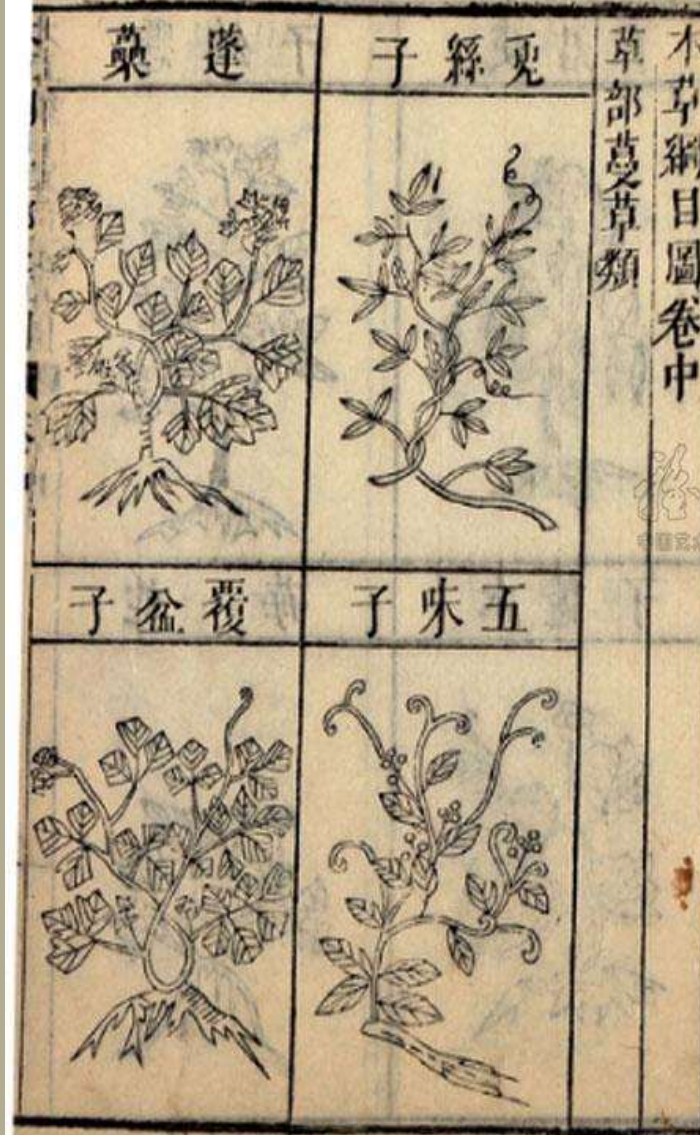 本草綱目圖卷中
草部蔓草類
兎絲子
五味子
蓬蘽
覆盆子